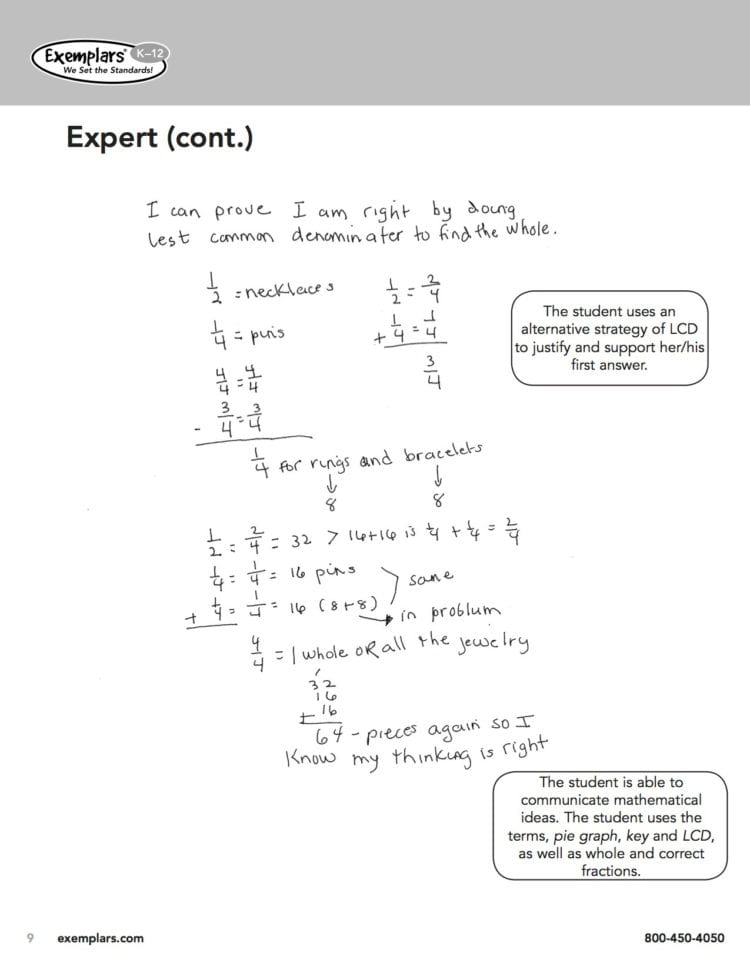 Exemplars® K–12
We Set the Standards!
Expert (cont.)
I can prove I am right by doing
lest common denominater to find the whole.
1/2 = necklaces
1/4 = pins
4/4 = 4/4
- 3/4 = 3/4
1/4 for rings and bracelets
↓ ↓
8 8
1/2 = 2/4
+ 1/4 = 1/4
3/4
The student uses an
alternative strategy of LCD
to justify and support her/his
first answer.
1/2 = 2/4 = 32 > 16+16 is 1/4 + 1/4 = 2/4
1/4 = 1/4 = 16 pins
+ 1/4 = 1/4 = 16 (8+8)
> same
→ in problum
4/4 = 1 whole OR all the jewelry
1
32
16
+ 16
64 - pieces again so I
Know my thinking is right
The student is able to
communicate mathematical
ideas. The student uses the
terms, pie graph, key and LCD,
as well as whole and correct
fractions.
9 exemplars.com 800-450-4050